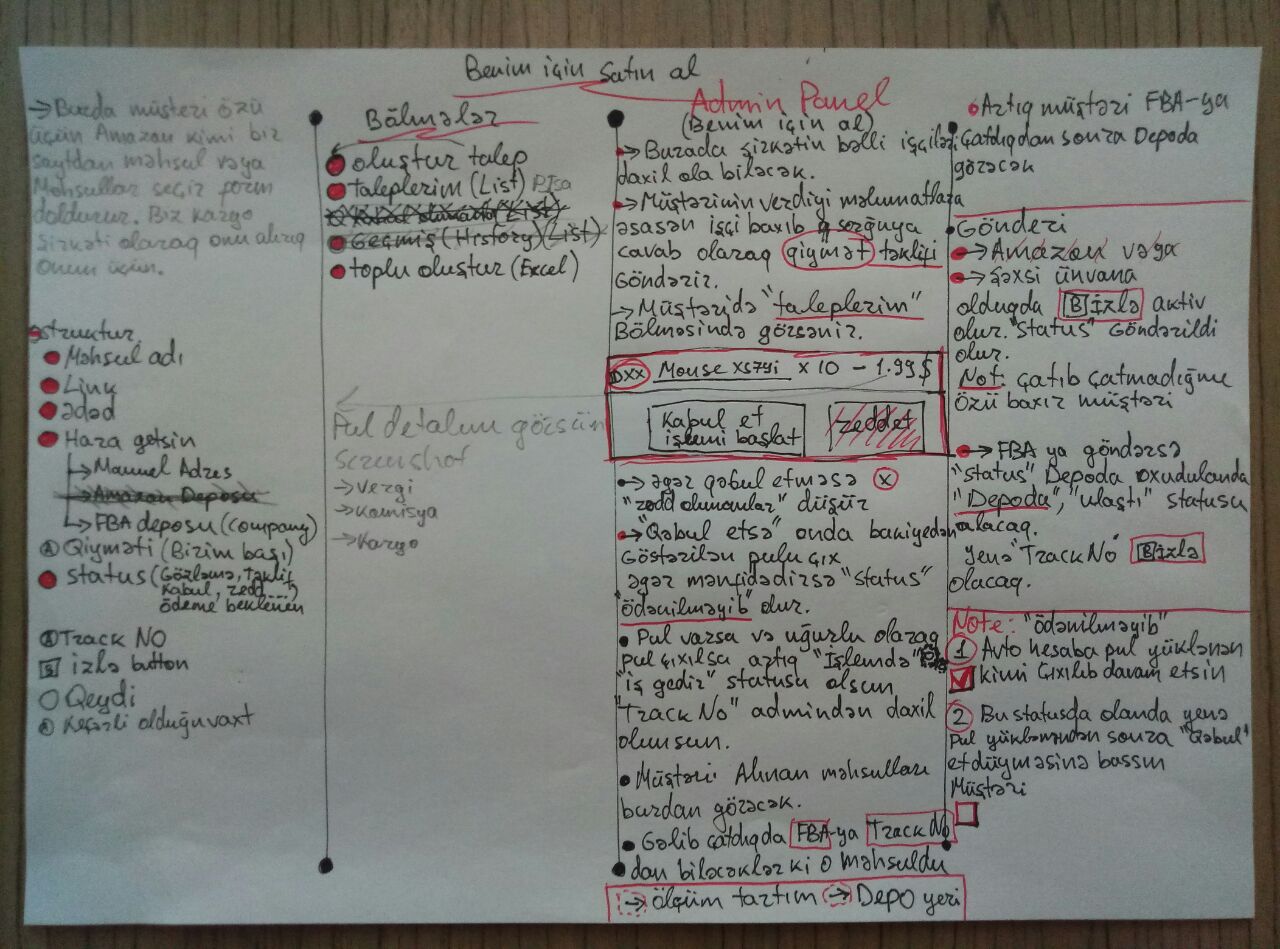 Benim için satın al
→ Burda müştəri özü
üçün Amazon kimi bir
saytdan məhsul vəya
Məhsullar seçir form
doldurur. Biz kargo
Şirkəti olaraq onu alırıq
onun için.
struktur
Məhsul adı
Link
Ədəd
Hara getsin
→ Manuel Adres
→ Amazon Deposu
→ FBA deposu (company)
Qiyməti (Bizim başı)
Status (Gözləmə, təklif
Kabul, redd...)
ödeme beklenen
Track NO
izlə button
Qeydi
Keçərli olduğu vaxt
Bölmələr
oluştur talep
taleplerim (List)
Geçmiş (History) (List)
toplu oluştur (Excel)
Pul detalını görsün
Screnshot
→ Vergi
→ Komisya
→ Kargo
Admin Panel
(Benim için al)
→ Burada şirkətin bəlli işçiləri
daxil ola biləcək.
→ Müştərinin verdiyi məlumatlara
əsasən işçi baxıb sorğuya
cavab olaraq qiymət təklifi
Göndərir.
→ Müştəridə "taleplerim"
Bölməsində görsənir.
DXX Mouse xs7yi x 10 - 1.99 $
Kabul et
işlemi başlat
reddet
→ əgər qəbul etməsə x
"redd olunanlar" düşür
→ "Qəbul etsə" onda bakiyedən
Göstərilən pulu çıx
əgər mənfidədirsə "status"
"ödənilməyib" olur.
• Pul varsa və uğurlu olaraq
pul çıxılsa artıq "İşlemdə"
"iş gedir" statusu olsun
"Track No" admindən daxil
olunsun.
• Müştəri Alınan məhsulları
burdan görəcək.
• Gəlib çatdıqda FBA-ya Track No
dan biləcəklər ki o məhsuldu
→ ölçüm tartım → Depo yeri
Artıq müştəri FBA-ya
çatdıqdan sonra Depoda
görəcək
Gönderi
→ Amazon vəya
→ Şəxsi ünvana
olduqda B İzlə aktiv
olur. "Status" Göndərildi
olur.
Not: çatıb çatmadığını
özü baxır müştəri
→ FBA ya göndərsə
"status" Depoda oxudulanda
"Depoda", "ulaştı" statusu
alacaq.
yenə "Track No" B izlə
olacaq.
Note: "ödənilməyib"
1 Avto hesaba pul yüklənən
kimi çıxılıb davam etsin
2 Bu statusda olanda yenə
pul yükləməndən sonra "Qəbul"
et düyməsinə bassın
Müştəri